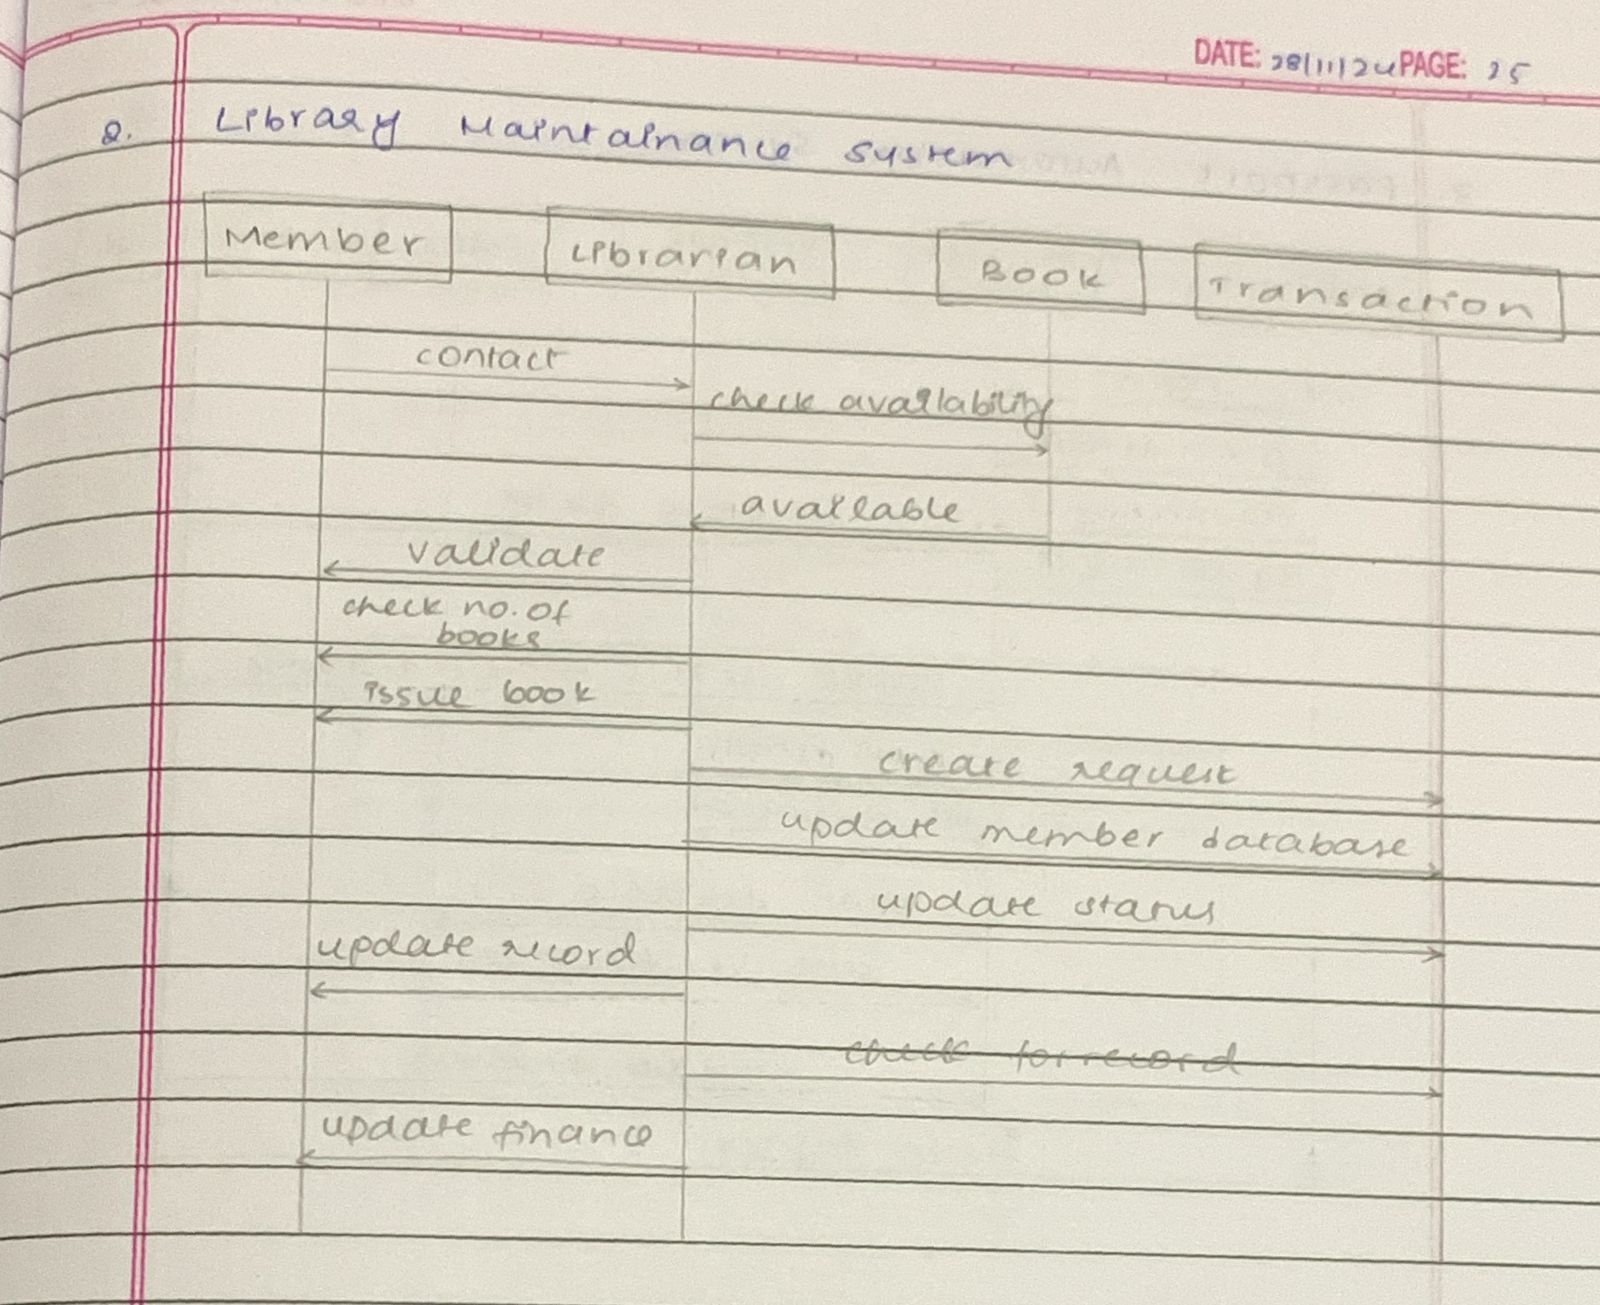 DATE: 28/11/24 PAGE: 25
2. Library Maintainance system
Member Librarian Book Transaction
contact
check availability
available
validate
check no. of
books
issue book
create request
update member database
update status
update record
check for record
update finance